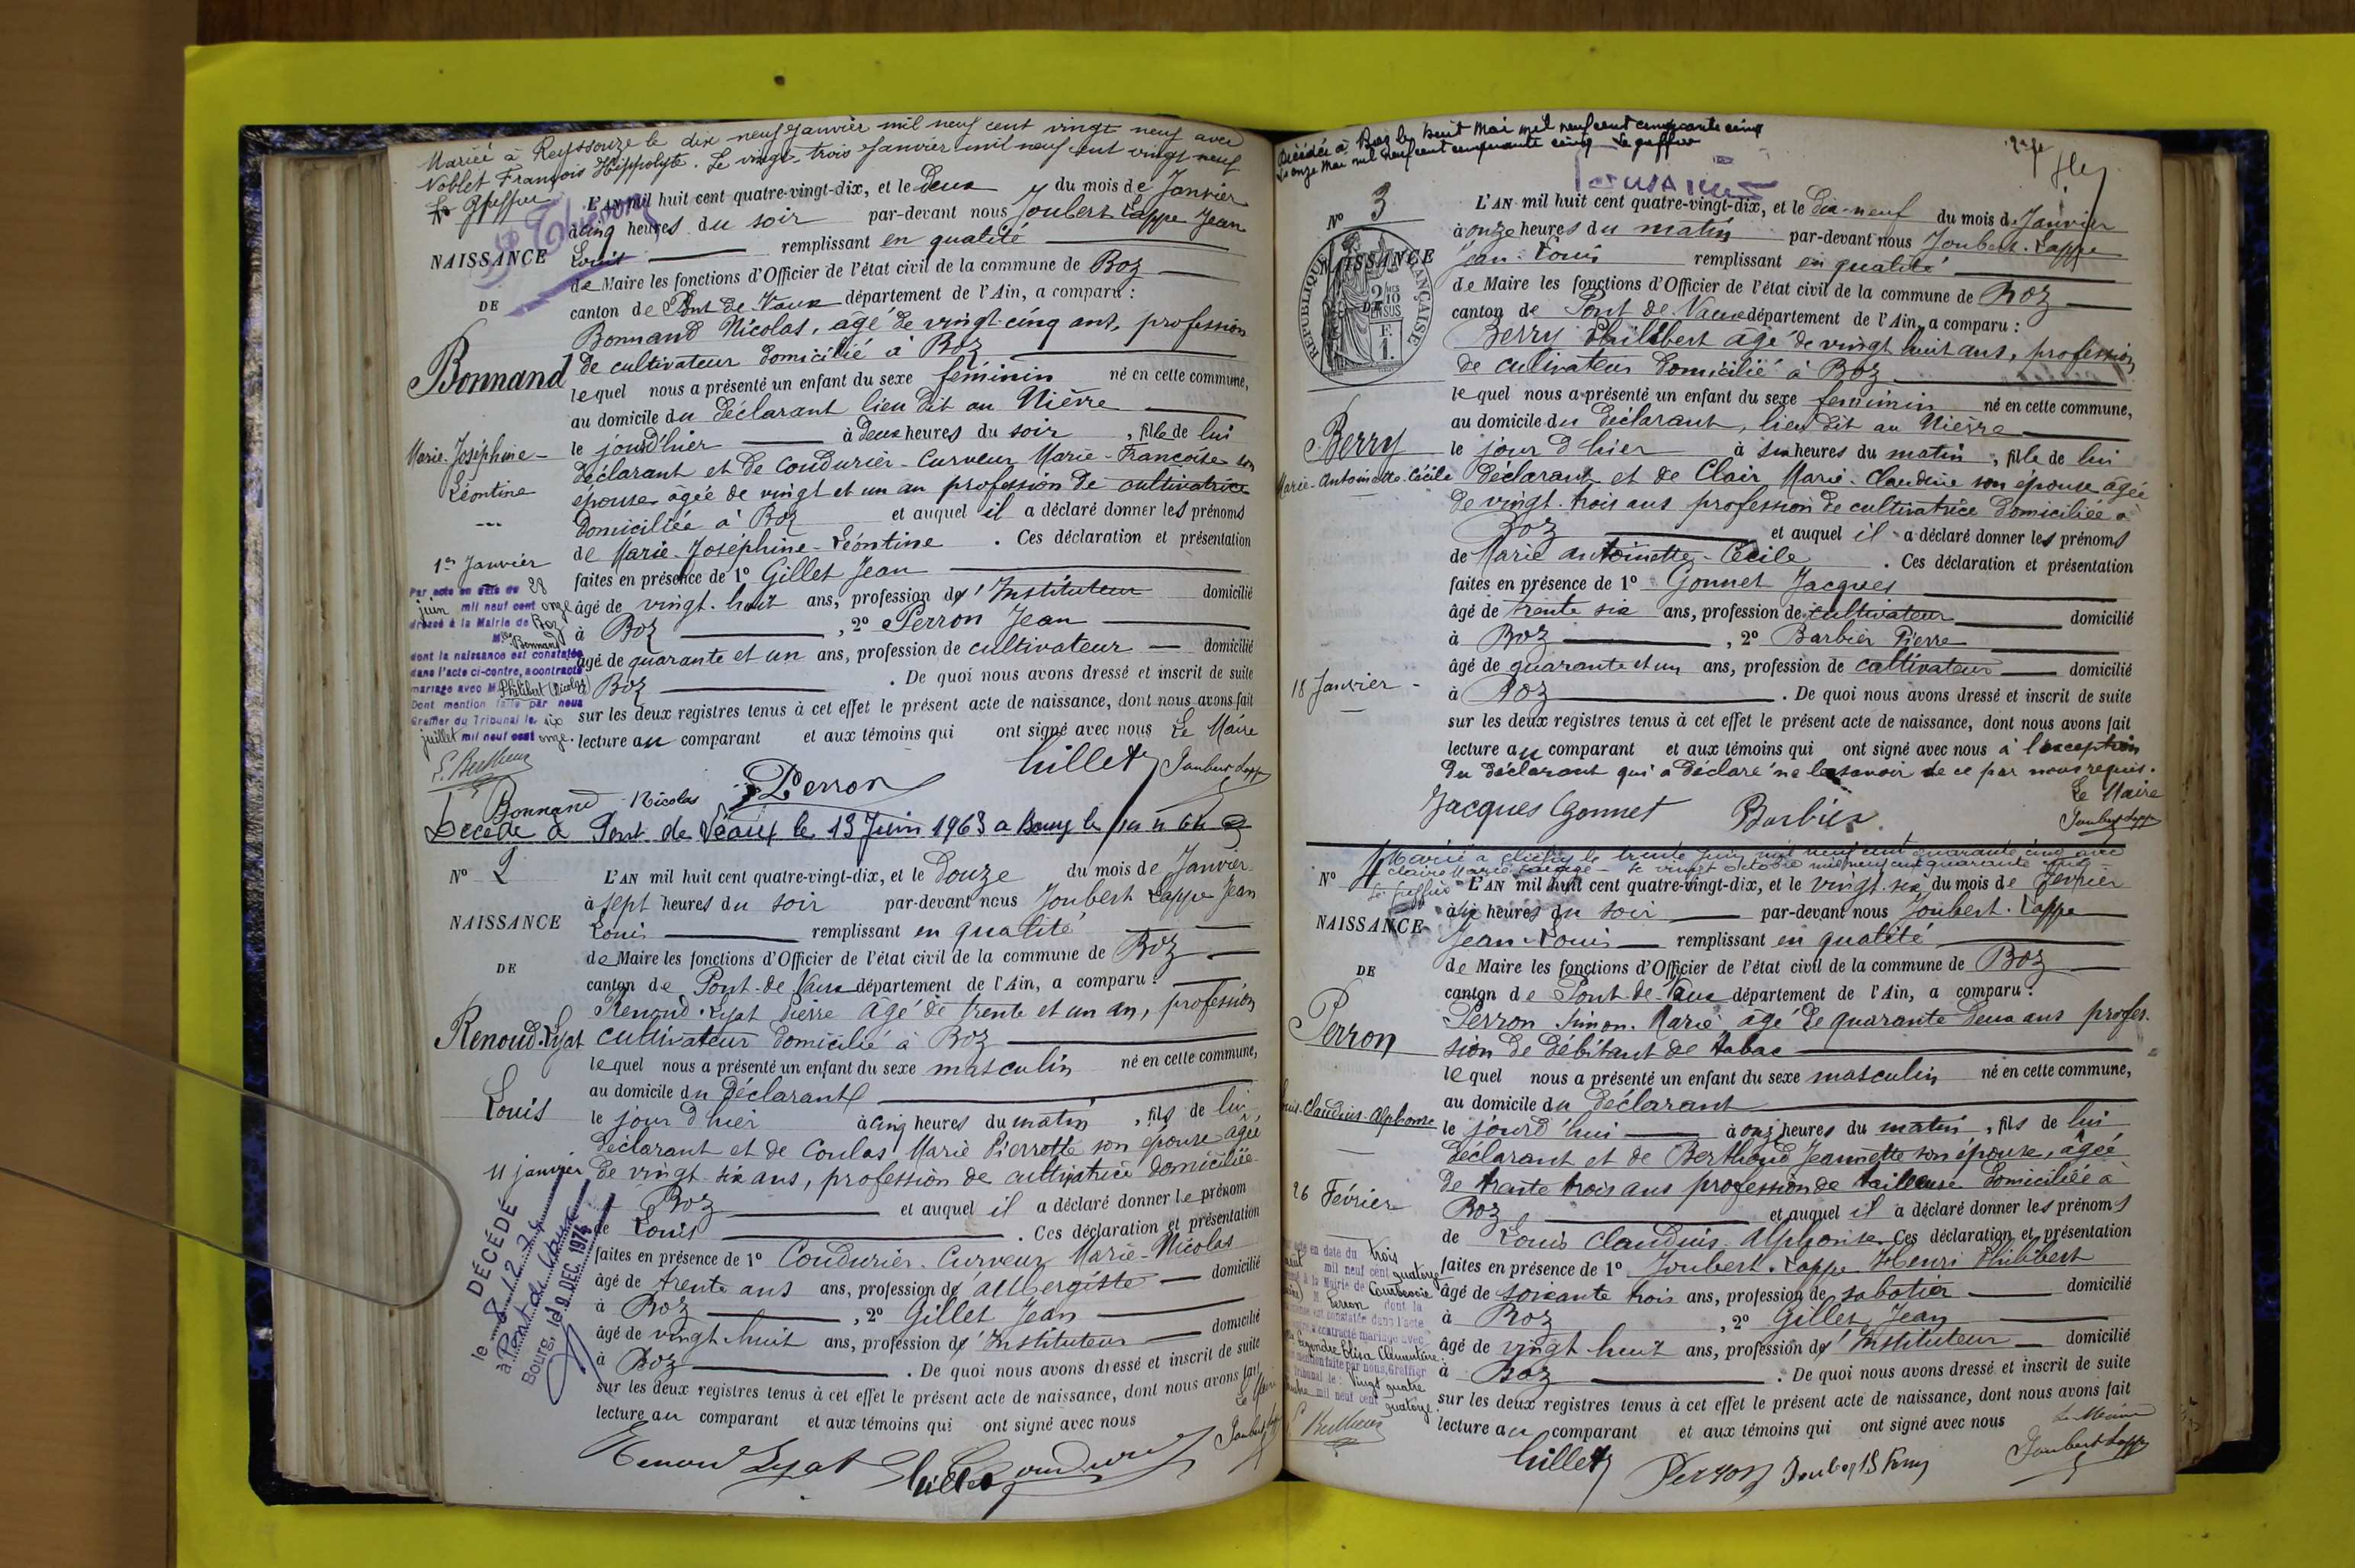 Mariée à Reyssouze le dix neuf Janvier mil neuf cent vingt neuf avec
Noblet François Hippolyte. Le vingt-trois Janvier mil neuf cent vingt neuf
Le Greffier
L'AN mil huit cent quatre-vingt-dix, et le Deux du mois de Janvier
à cinq heures du soir par-devant nous Joubert Lappe Jean
Louis remplissant en qualité
NAISSANCE
de Maire les fonctions d'Officier de l'état civil de la commune de Boz
DE
canton de Pont de Vaux département de l'Ain, a comparu :
Bonnand Nicolas, âgé de vingt-cinq ans, profession
de cultivateur domicilié à Boz
Bonnand
lequel nous a présenté un enfant du sexe féminin né en cette commune,
au domicile du déclarant lieu dit au Nièvre
le jour d'hier à deux heures du soir, fille de lui
Marie-Joséphine-
Léontine
déclarant et de Condurier-Curveur Marie-Françoise son
épouse âgée de vingt et un an profession de cultivatrice
domiciliée à Boz et auquel il a déclaré donner les prénoms
de Marie-Joséphine-Léontine. Ces déclaration et présentation
1er Janvier
faites en présence de 1° Gillet Jean
âgé de vingt-huit ans, profession d'Instituteur domicilié
à Boz, 2° Perron Jean
âgé de quarante et un ans, profession de cultivateur domicilié
à Boz. De quoi nous avons dressé et inscrit de suite
sur les deux registres tenus à cet effet le présent acte de naissance, dont nous avons fait
lecture au comparant et aux témoins qui ont signé avec nous Le Maire
Par acte en date du 28
juin mil neuf cent onze
dressé à la Mairie de Boz
Mlle Bonnand
dont la naissance est constatée
dans l'acte ci-contre, a contracté
mariage avec M. Philibert (Nicolas)
Dont mention faite par nous
Greffier du Tribunal le six
juillet mil neuf cent onze.
Gillet Joubert Lapp
Bonnand Nicolas Perron
Décédé à Pont de Vaux le 13 Juin 1963 a Bourg le
N° 2
L'AN mil huit cent quatre-vingt-dix, et le Douze du mois de Janvier
à sept heures du soir par-devant nous Joubert Lappe Jean
NAISSANCE
Louis remplissant en qualité
de Maire les fonctions d'Officier de l'état civil de la commune de Boz
DE
canton de Pont-de-Vaux département de l'Ain, a comparu :
Renoud-Lyat Pierre âgé de trente et un an, profession
Renoud-Lyat
cultivateur domicilié à Boz
lequel nous a présenté un enfant du sexe masculin né en cette commune,
au domicile du déclarant
Louis
le jour d'hier à cinq heures du matin, fils de lui,
déclarant et de Coulas Marie Pierrette son épouse âgée
11 janvier
de vingt-six ans, profession de cultivatrice domiciliée
à Boz et auquel il a déclaré donner le prénom
de Louis. Ces déclaration et présentation
faites en présence de 1° Condurier-Curveur Marie-Nicolas
âgé de trente ans ans, profession d'aubergiste domicilié
à Boz, 2° Gillet Jean
âgé de vingt huit ans, profession d'Instituteur domicilié
à Boz. De quoi nous avons dressé et inscrit de suite
sur les deux registres tenus à cet effet le présent acte de naissance, dont nous avons fait
lecture au comparant et aux témoins qui ont signé avec nous Le Maire
DÉCÉDÉ
le 8.12.74
à Pont de Vaux
Bourg, le 9 DEC. 1974
Renoud Lyat Gillet Condurier Joubert
Décédée à Boz le huit Mai mil neuf cent cinquante cinq
Le onze Mai mil neuf cent cinquante cinq Le greffier
N° 3
L'AN mil huit cent quatre-vingt-dix, et le Dix-neuf du mois de Janvier
à onze heures du matin par-devant nous Joubert-Lappe
NAISSANCE
DE
RÉPUBLIQUE FRANÇAISE
Jean-Louis remplissant en qualité
de Maire les fonctions d'Officier de l'état civil de la commune de Boz
canton de Pont de Vaux département de l'Ain, a comparu :
Berry Philibert âgé de vingt huit ans, profession
de cultivateur domicilié à Boz
lequel nous a présenté un enfant du sexe féminin né en cette commune,
au domicile du déclarant, lieu dit au Nièvre
Berry
le jour d'hier à six heures du matin, fille de lui
Marie-Antoinette-Cécile
déclarant et de Clair Marie-Claudine son épouse âgée
de vingt-trois ans profession de cultivatrice domiciliée à
Boz et auquel il a déclaré donner les prénoms
de Marie Antoinette-Cécile. Ces déclaration et présentation
faites en présence de 1° Gonnet Jacques
âgé de trente six ans, profession de cultivateur domicilié
à Boz, 2° Barbier Pierre
âgé de quarante et un ans, profession de cultivateur domicilié
18 Janvier
à Boz. De quoi nous avons dressé et inscrit de suite
sur les deux registres tenus à cet effet le présent acte de naissance, dont nous avons fait
lecture au comparant et aux témoins qui ont signé avec nous à l'exception
du déclarant qui a déclaré ne le savoir de ce par nous requis.
Le Maire
Jacques Gonnet Barbier Joubert Lapp
Marié à Clichy le trente Juin mil neuf cent quarante cinq avec
N° 4
L'AN mil huit cent quatre-vingt-dix, et le vingt-six du mois de Février
à six heures du soir par-devant nous Joubert-Lappe
NAISSANCE
Jean-Louis remplissant en qualité
DE
de Maire les fonctions d'Officier de l'état civil de la commune de Boz
canton de Pont-de-Vaux département de l'Ain, a comparu :
Perron Simon-Marie âgé de quarante deux ans profes-
Perron
sion de débitant de tabac
lequel nous a présenté un enfant du sexe masculin né en cette commune,
au domicile du déclarant
Louis-Claudius-Alphonse
le jourd'hui à onze heures du matin, fils de lui
déclarant et de Berthoud Jeannette son épouse, âgée
de trente trois ans profession de tailleuse domiciliée à
26 Février
Boz et auquel il a déclaré donner les prénoms
de Louis Claudius-Alphonse. Ces déclaration et présentation
faites en présence de 1° Joubert-Lappe Henri Philibert
âgé de soixante trois ans, profession de sabotier domicilié
à Boz, 2° Gillet Jean
âgé de vingt huit ans, profession d'Instituteur domicilié
à Boz. De quoi nous avons dressé et inscrit de suite
sur les deux registres tenus à cet effet le présent acte de naissance, dont nous avons fait
lecture au comparant et aux témoins qui ont signé avec nous Le Maire
en date du trois
mil neuf cent quatorze
à la Mairie de Courbevoie
M. Perron dont la
est constatée dans l'acte
contracté mariage avec
Elisa Clémentine
mention faite par nous, Greffier
Tribunal le vingt quatre
mil neuf cent quatorze
Gillet Perron Joubert Joubert Lapp